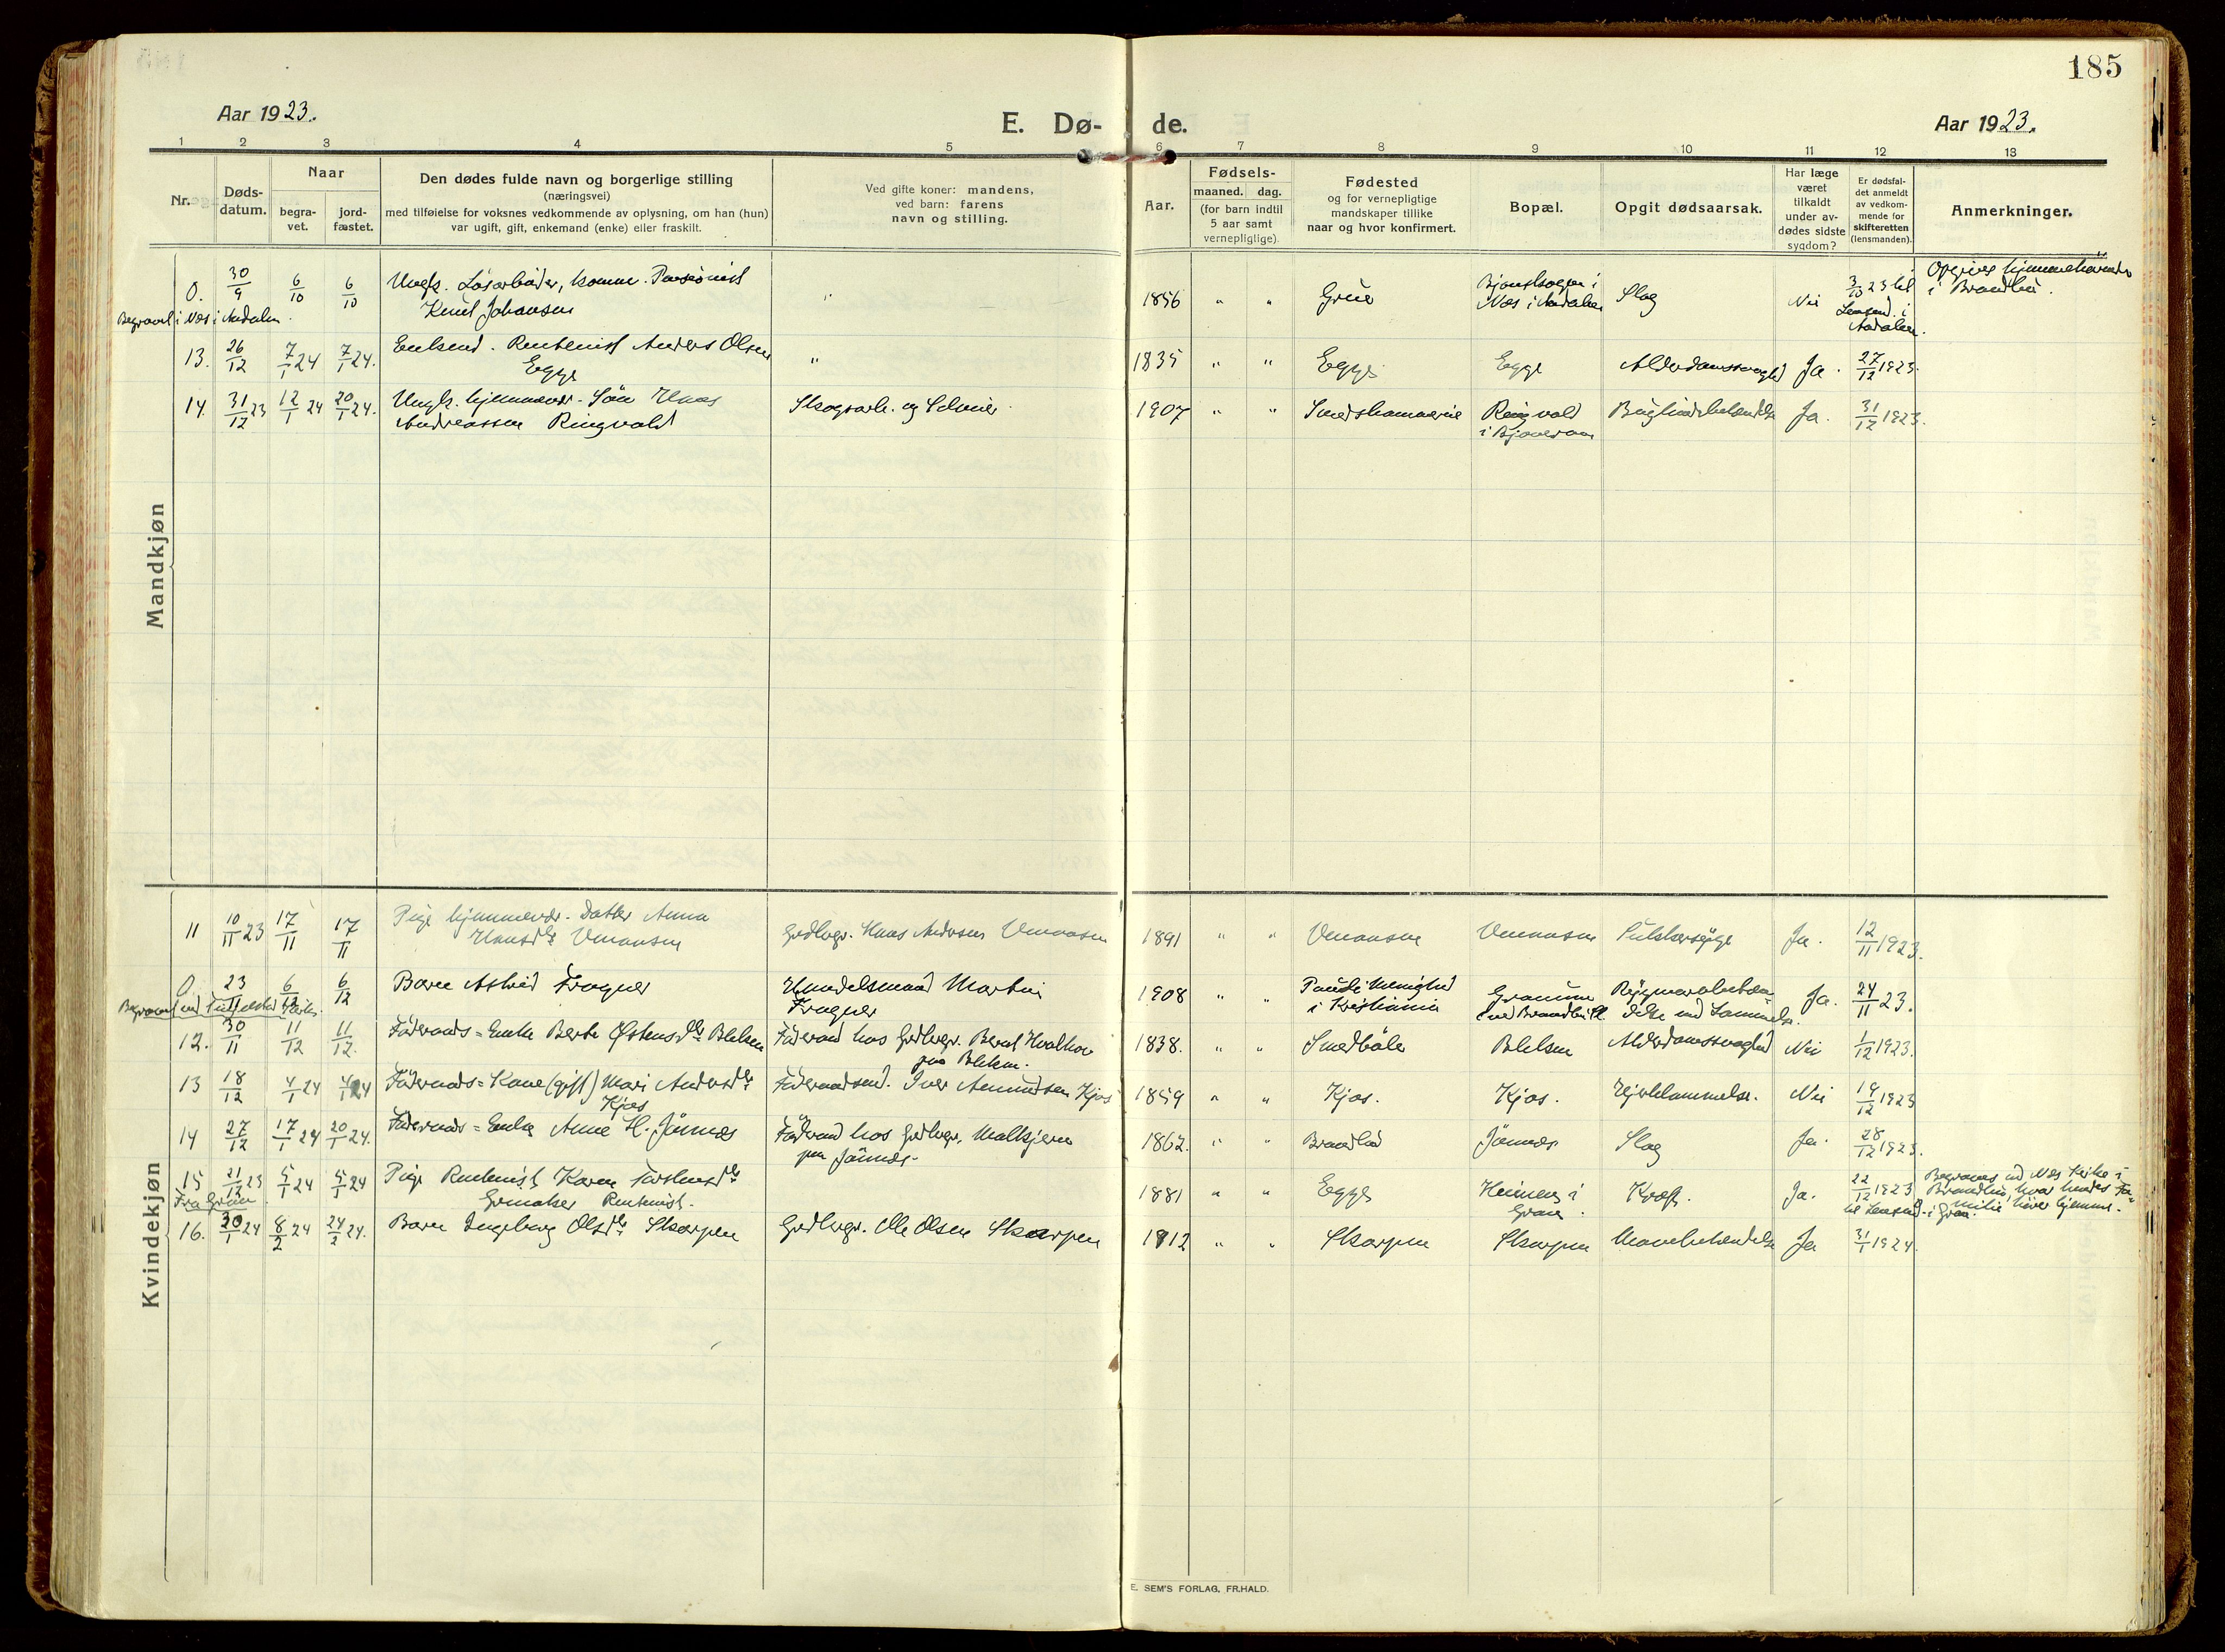 185
Aar 1923.
E. Dø- de.
Aar 1923.
1 2 3 4 5 6 7 8 9 10 11 12 13
Nr.
Døds-
datum.
Naar
begra-
vet.
jord-
fæstet.
Den dødes fulde navn og borgerlige stilling
(næringsvei)
med tilføielse for voksnes vedkommende av oplysning, om han (hun)
var ugift, gift, enkemand (enke) eller fraskilt.
Ved gifte koner: mandens,
ved barn: farens
navn og stilling.
Aar.
Fødsels-
maaned. dag.
(for barn indtil
5 aar samt
vernepligtige).
Fødested
og for vernepligtige
mandskaper tillike
naar og hvor konfirmert.
Bopæl.
Opgit dødsaarsak.
Har læge
været
tilkaldt
under av-
dødes sidste
sygdom?
Er dødsfal-
det anmeldt
av vedkom-
mende for
skifteretten
(lensmanden).
Anmerkninger.
Mandkjøn
0. 30/9 6/10 6/10 Ungk. Løsarbeider, komm. Pensionist
Knut Johansen
" 1856 " " Grue
Næs i Aadalen
Slag Nei 3/10 23 til
Lensmd. i
Aadalen.
Opgives hjemmehørende
i Brandbu.
Begravet i Næs i Aadalen.
13. 26/12 7/1 24 7/1 24. Enkemd. Rentenist Anders Olsen
Egge
" 1835 " " Egge Egge Alderdomssvaghed Ja. 27/12 1923.
14. 31/12 23 12/1 24 20/1 24. Ungk. hjemmevær. Søn Hans
Andreassen Ringvold
Skogsarb. og Selveier. 1907 " " Smedshammerie Ringvold
i Bjoneroa
Ja. 31/12 1923.
Kvindekjøn
11 10/11 23 17/11 17/11 Pige hjemmevær. Datter Anna
Hansdtr
Grdbrgr. Hans 1891 " " Ja. 12/11 1923.
0. 23/11 6/12 6/12 Barn Astrid Frogner
Handelsmand Martin
Frogner
1908 " " Paulus Menighed
i Kristiania
Ja. 24/11 23.
12. 30/11 11/12 11/12. Føderaads-Enke Berte Østensdtr Bleken
Føderaad hos Grdbrgr. Bernt Hvalbye
paa Bleken.
1838. " " Smedbøle Bleken Alderdomssvaghed Nei 1/12 1923.
13 18/12 4/1 24 4/1 24 Føderaads-Kone (gift) Mari Andersdtr
Kjos
Føderaadsmd. Iver Amundsen Kjos 1859 " " Kjos. Kjos. Hjertelammelse. Nei 19/12 1923
14 27/12 17/1 24 20/1 24. Føderaads-Enke Anne H. Jønnes
Føderaad hos Grdbrgr.
paa Jønnes.
1862. " " Brandbu Jønnes Slag Ja. 28/12 1923.
15 21/12 23 5/1 24 5/1 24 Pige Rentenist Karen Torstensdtr
Rentenist.
Fra Gran
1881 " " Egge
Gran.
Kræft. Ja. 22/12 1923
til Lensmd. i Gran.
Begraves ved Næs Kirke i
Brandbu, hvor hendes Fa-
milie hører hjemme.
16. 30/1 24 8/2 24 24/2 24. Barn Ingeborg Olsdtr Skarpen
Grdbrgr. Ole Olsen Skarpen 1912 " " Skarpen Skarpen Mavebetændelse Ja 31/1 1924.
E. SEM'S FORLAG, FR.HALD.